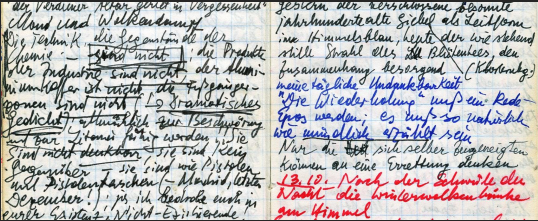 der Verdiener Altar geriet in Vergessenheit
Mond und Wolkendunst
Die Technik, die Gegenstände der
Chemie — sind nicht, die Produkte
der Industrie sind nicht, der Alumi-
niumkoffer ist nicht, die Fußgänger-
zonen sind nicht (→ Dramatisches
Gedicht) allmählich zur Beschwörung
und zur Litanei fähig worden, Sie
sind nicht denkbar, sie sind kein
Gegenüber — sie sind wie Pistolen
mit Pistolentaschen (Madrid, letzten
Dezember): ja, ich bedrohe euch in
eurer Existenz, Nicht-Existierende
gestern der zerschlissene besonnte
jahrhundertealte Giebel als Leitform
ins Himmelsblau, heute der wie stehend
stille Strahl des Blitzlichts, den
Zusammenhang besorgend (Klosterneubg.)
meine tägliche Undankbarkeit
"Die Wiederholung" muß ein Rede-
Epos werden; es muß so natürlich
wie mündlich erzählt sein
Nur die sich selber Zugeneigten
können an eine Errettung denken
13.10. Nach der Schwüle der
Nacht die winterwolkenbänke
am Himmel